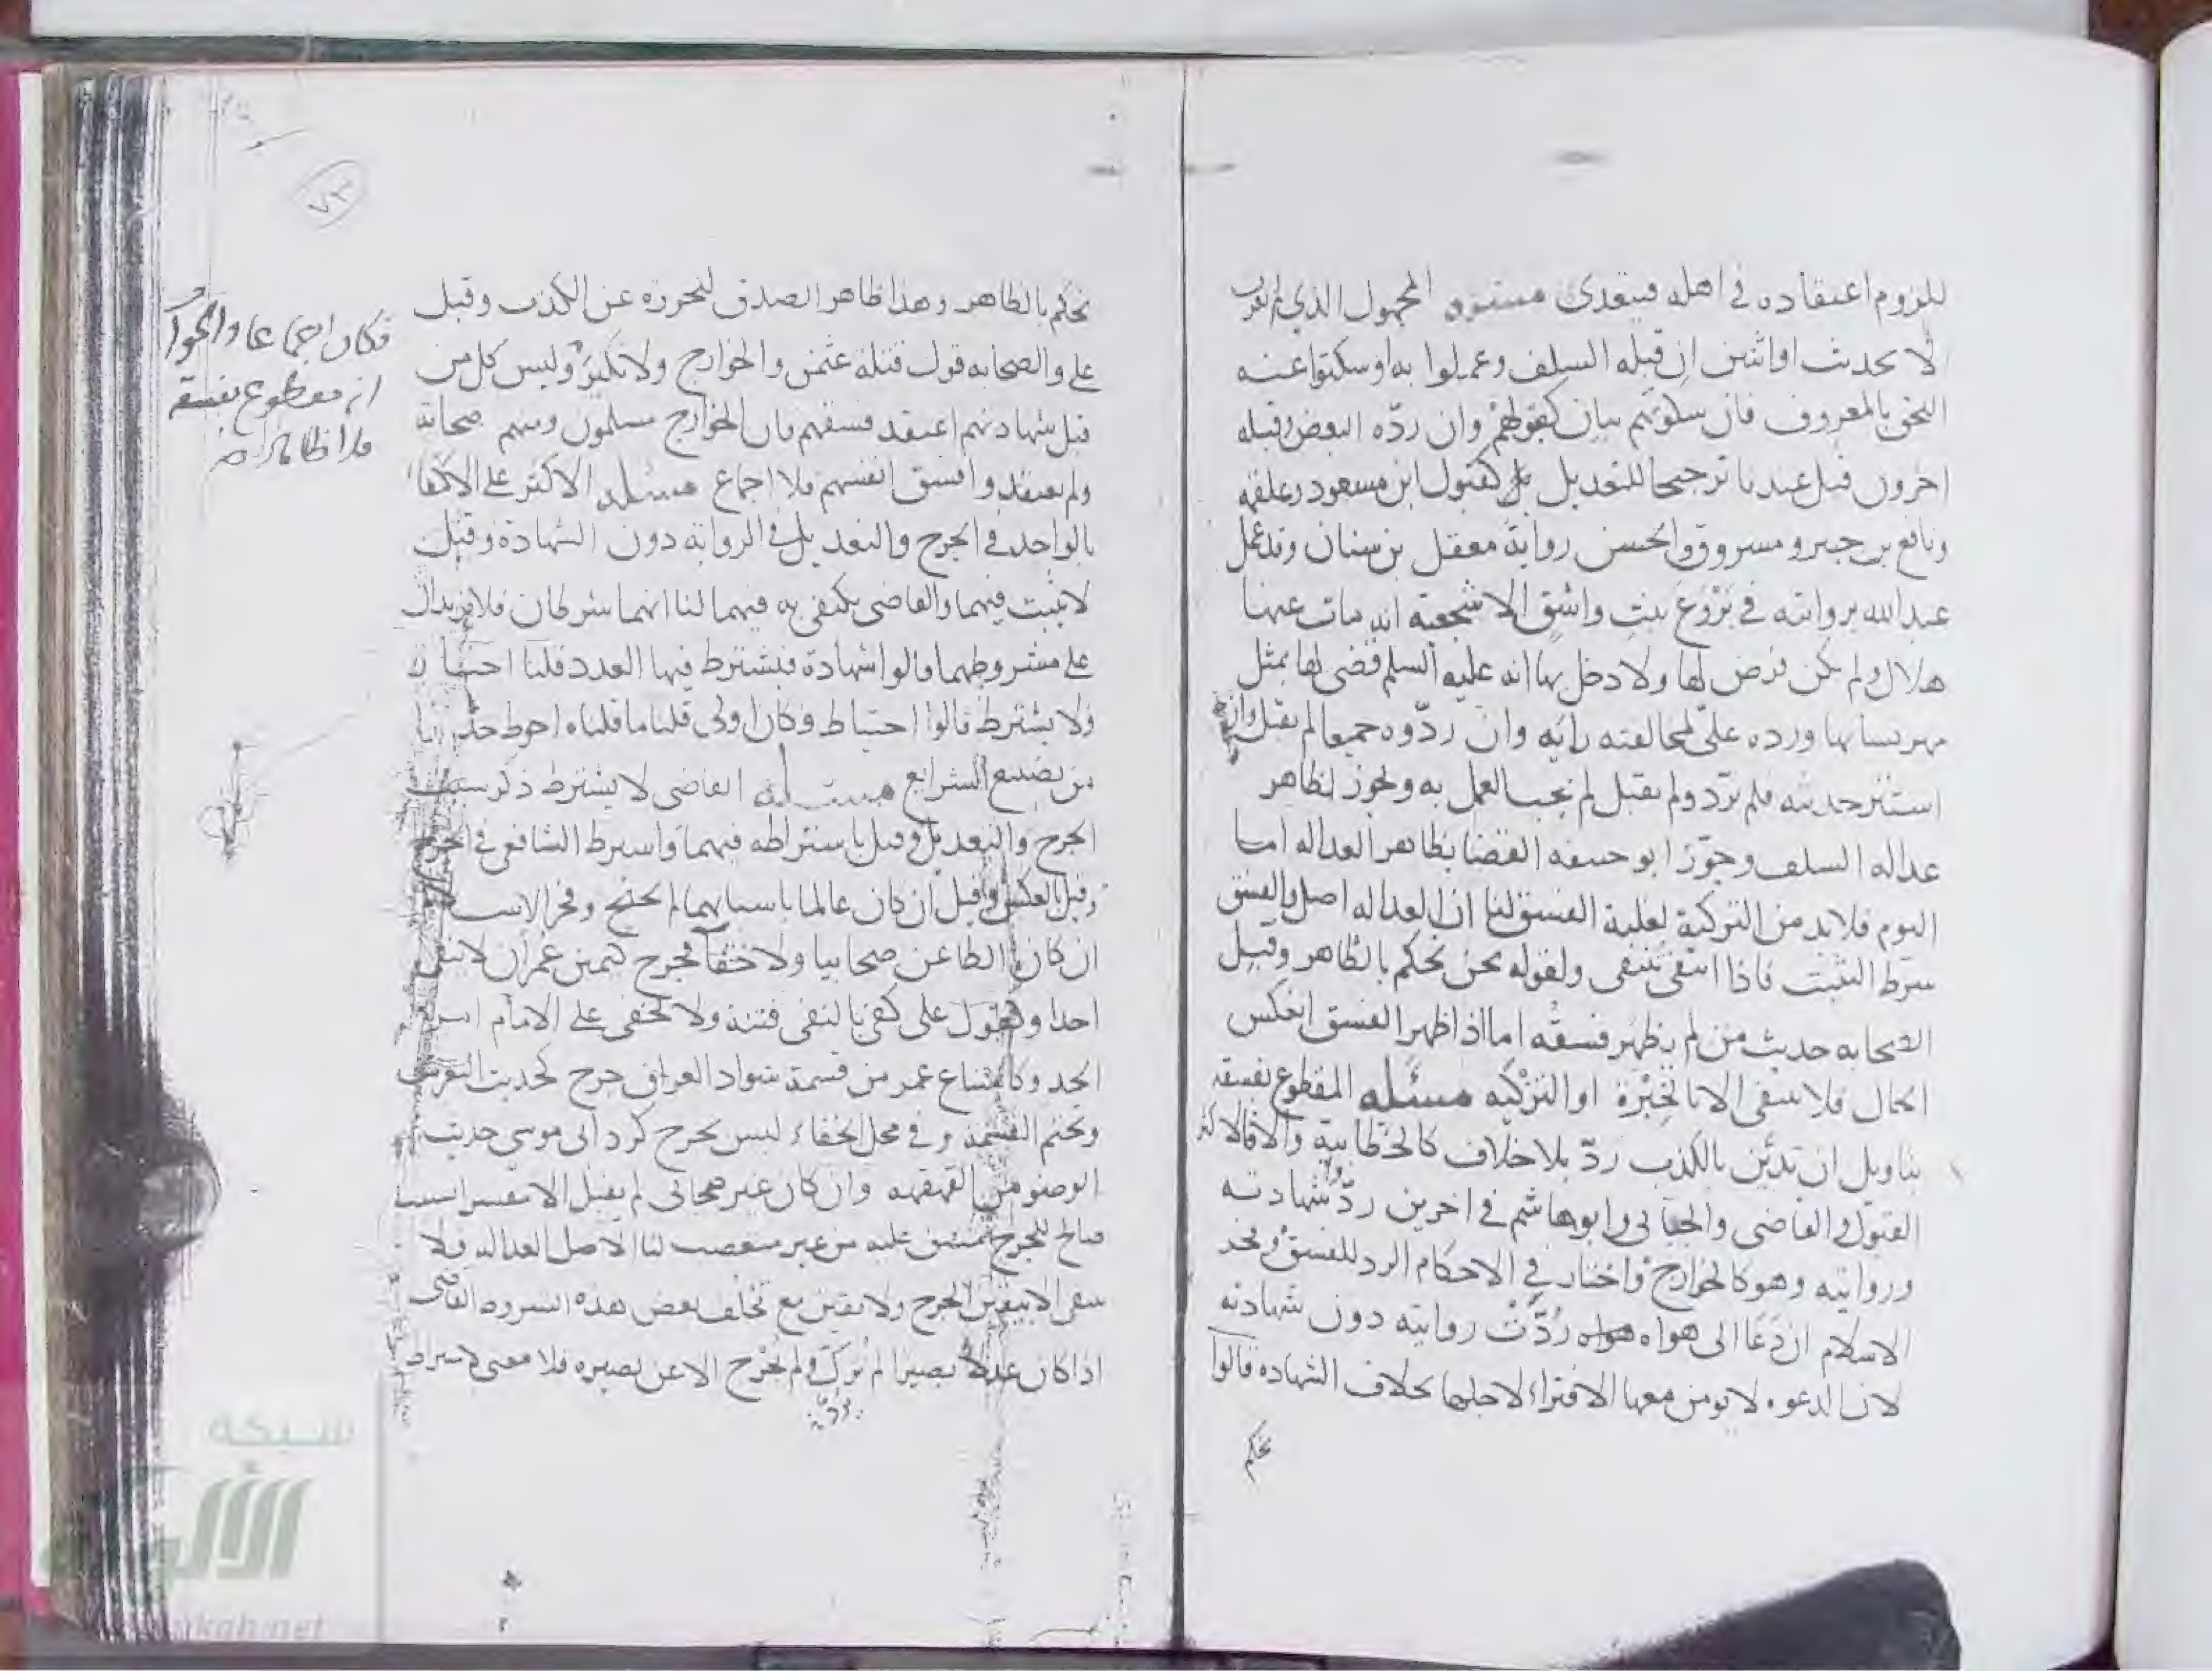 للزوم اعتقاده في اهله فيتعدى مسئله المجهول الذي لم يعرف
الا بحديث او اثنين ان قبله السلف وعملوا به او سكتوا عنه
التحق بالمعروف فان سكوتهم بيان كقبولهم وان ردّه البعض وقبله
اخرون قبل عندنا ترجيحا للتعديل كقبول ابن مسعود وعلقمه
ونافع بن جبير ومسروق والحسن رواية معقل بن سنان وقد عمل
عبد الله بروايته في بَرْوَعَ بنتِ واشقٍ الاشجعية انه مات عنها
هلال ولم يكن فرض لها ولا دخل بها انه عليه السلم قضى لها بمثل
مهر نسائها ورده عليّ لمخالفته رأيه وان ردّوه جميعا لم يقبل وان
استتر حديثه فلم يردّ ولم يقبل لم يجب العمل به ويجوز لظاهر
عداله السلف وجوّز ابو حنيفه القضا بظاهر العداله اما
اليوم فلا بد من التزكية لغلبة الفسق لنا ان العداله اصل والفسق
شرط التثبت فاذا انتفى ينتفى ولقوله نحن نحكم بالظاهر وقبل
الصحابه حديث من لم يظهر فسقه اما اذا ظهر الفسق انعكس
الحال فلا ينتفى الا بالخِبْرة او التزكيه مسئله المقطوع بفسقه
بتاويل ان تديّن بالكذب ردّ بلا خلاف كالخطابية والا فالاكثر
القبول والقاضى والجبائى وابو هاشم في اخرين ردّ شهادته
وروايته وهو كالخوارج واختار في الاحكام الرد للفسق وفخر
الاسلام ان دَعَا الى هواه رُدّتْ روايته دون شهادته
لان الدعوه لا يومن معها الافتراء لاجلها بخلاف الشهاده قالوا
نحكم
٧٣
نحكم بالظاهر وهذا ظاهر الصدق لتحرزه عن الكذب وقبل
على والصحابه قول قتلة عثمن والخوارج ولا نكير وليس كل من
قبل شهادتهم اعتقد فسقهم فان الخوارج مسلمون ومنهم صحابه
ولم يعتقدوا فسق انفسهم فلا اجماع مسئله الاكثر على الاكتفا
بالواحد في الجرح والتعديل في الرواية دون الشهادة وقيل
لا يثبت فيهما والقاضى يكتفى به فيهما لنا انهما شرطان فلا يزيدان
على مشروطهما قالوا شهادة فيشترط فيها العدد قلنا اخبار
ولا يشترط قالوا احتياط وكان اولى قلنا ما قلناه احوط حذرا
من تضييع الشرايع مسئله القاضى لا يشترط ذكر سبب
الجرح والتعديل وقيل باشتراطه فيهما واشترط الشافعى في الجرح
وقيل بالعكس وقيل ان كان عالما باسبابهما لم يحتج وفخر الاسلام
ان كان الطاعن صحابيا ولا خفآ فجرح كيمين عمر ان لا ينفى
احدا وكقول على كفى بالنفى فتنة ولا يخفى على الامام امر
الحد وكامتناع عمر من قسمة سواد العراق جرح لحديث
وتحتم القسمة وفي محل الخفاء ليس بجرح كرد ابى موسى حديث
الوضو من القهقهه وان كان غير صحابى لم يقبل الا مفسرا بسبب
صالح للجرح متفق عليه من غير متعصب لنا الاصل العدالة فلا
ينتفى الا بيقين الجرح ولا يقين مع تخلف بعض هذه الشروط القاضى
اذا كان عدلا بصيرا لم يزكّ ولم يجرح الا عن بصيره فلا معنى لاشتراط
فكان اجماعا والجواب
انه مقطوع بفسقه